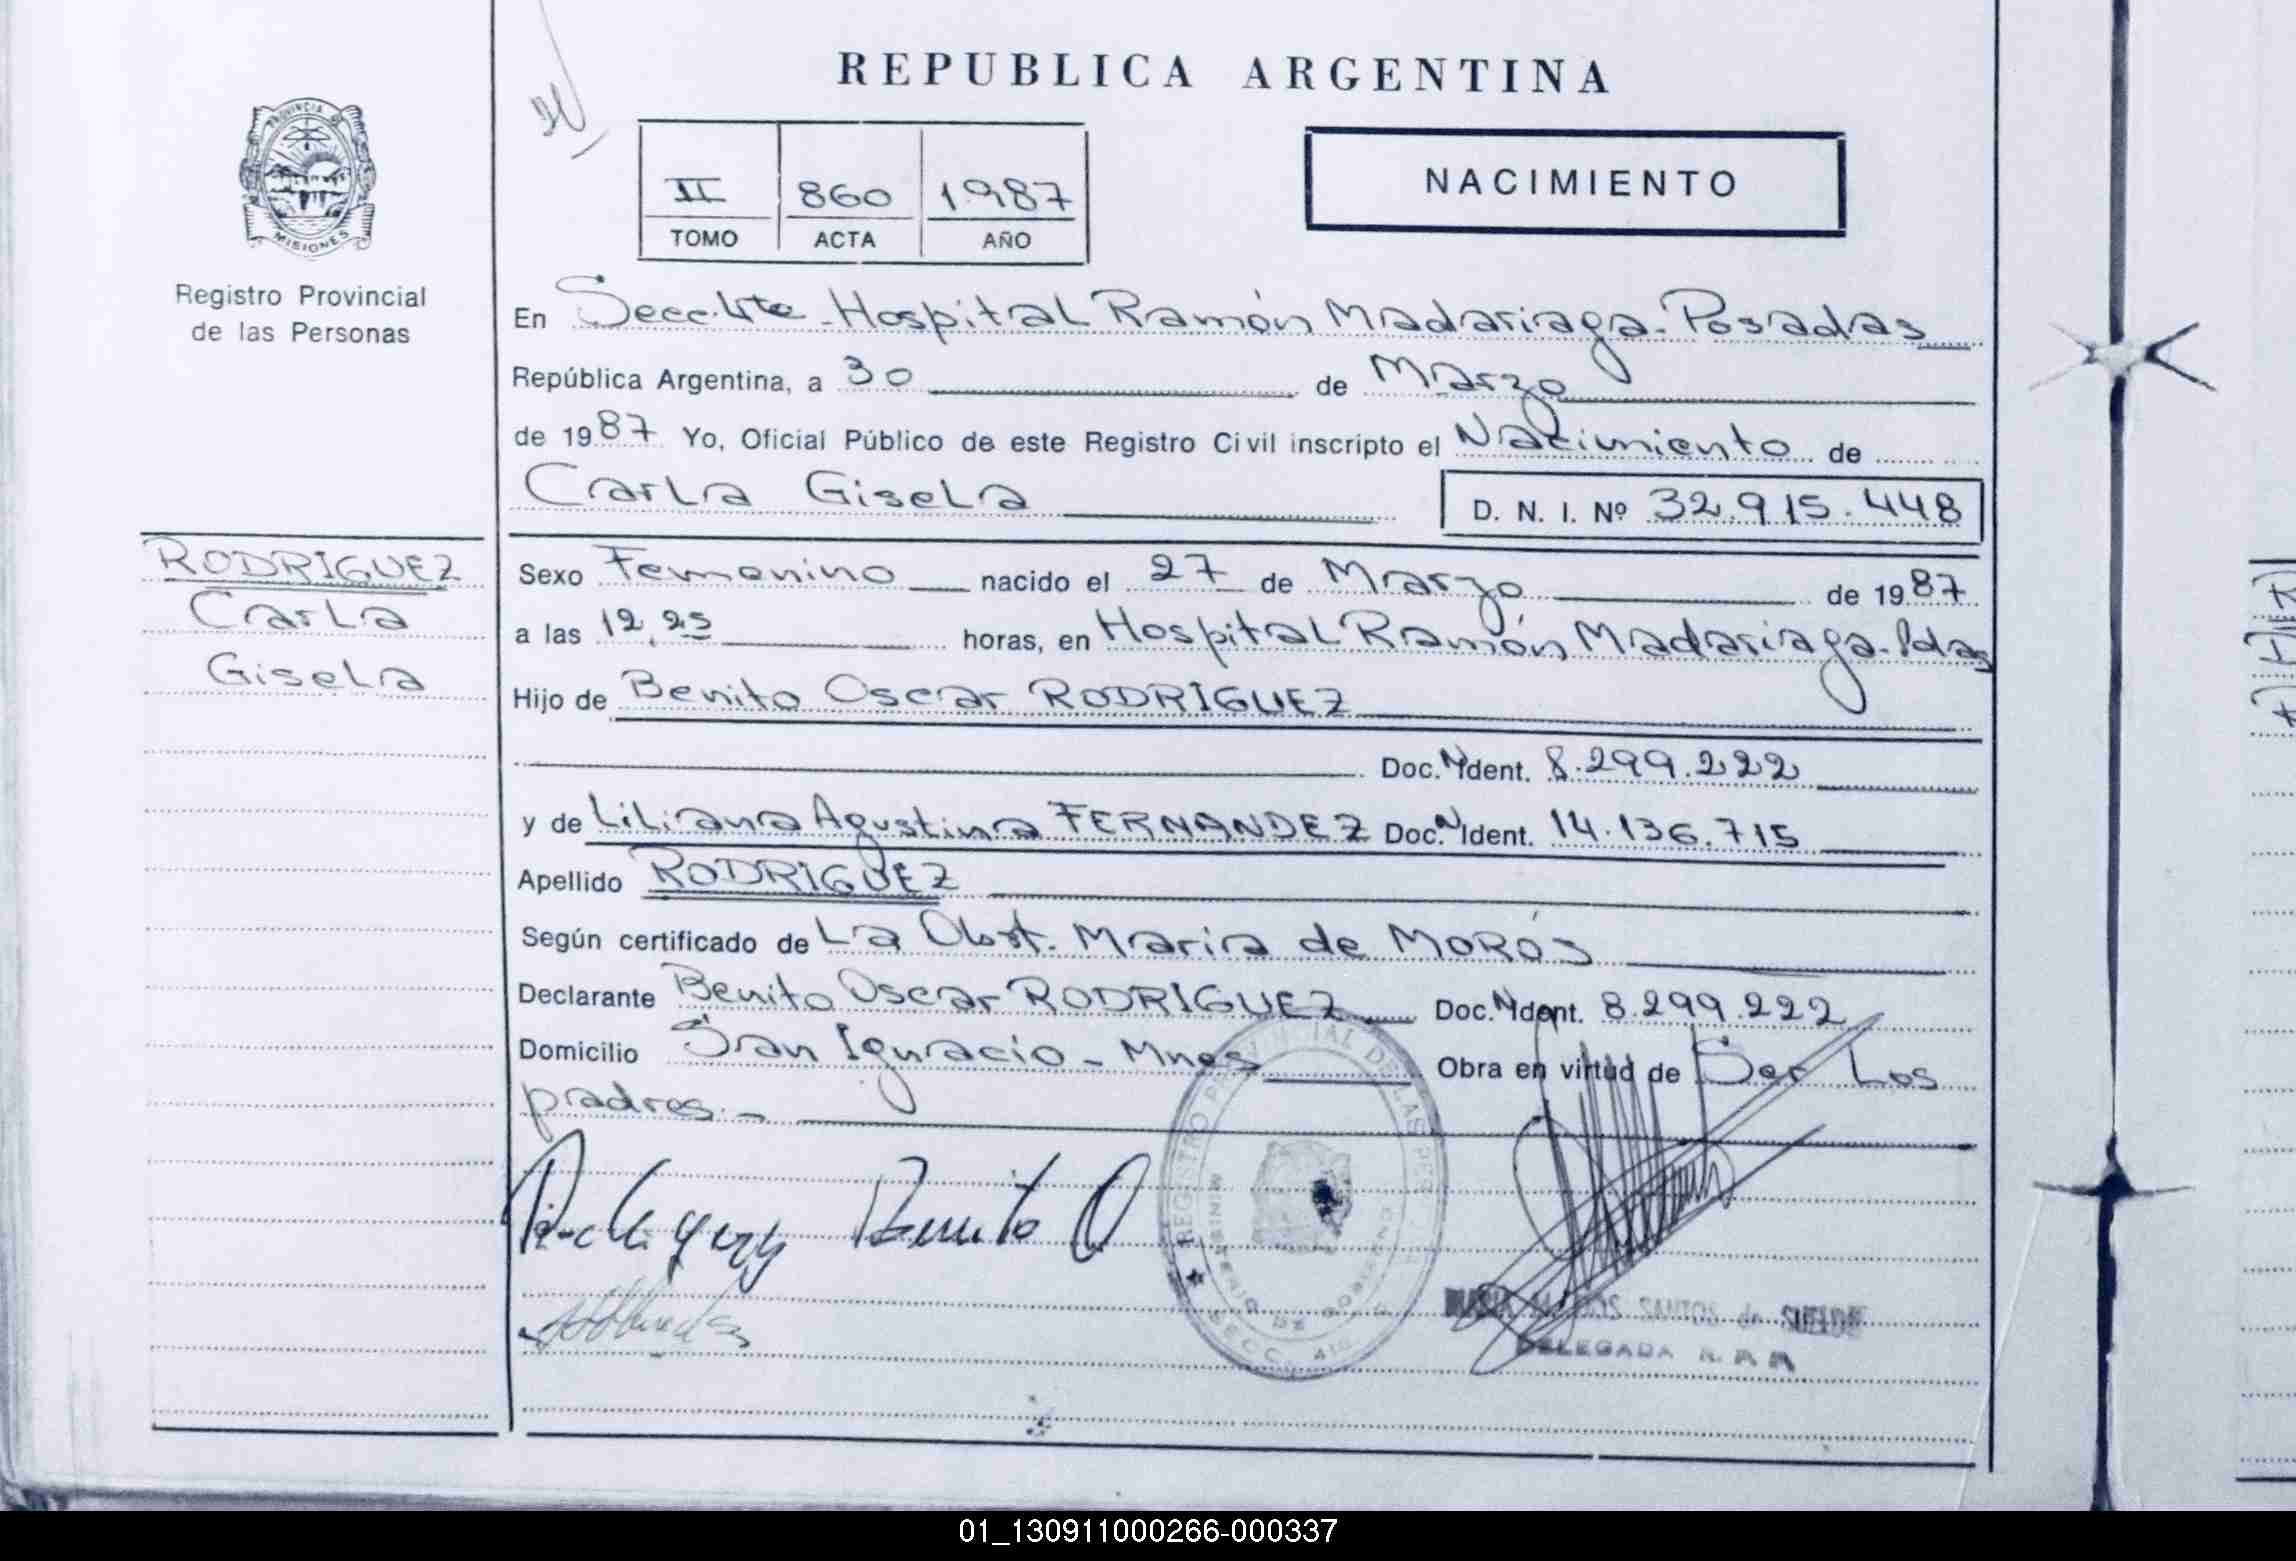 REPUBLICA ARGENTINA
PROVINCIA DE
MISIONES
Registro Provincial
de las Personas
II 860 1987
TOMO ACTA AÑO
NACIMIENTO
En Secc. 4ta - Hospital Ramón Madariaga - Posadas
República Argentina, a 30 de Marzo
de 1987 Yo, Oficial Público de este Registro Civil inscripto el Nacimiento de
Carla Gisela
D. N. I. Nº 32.915.448
RODRIGUEZ
Carla
Gisela
Sexo Femenino nacido el 27 de Marzo de 1987
a las 12,25 horas, en Hospital Ramón Madariaga - Pdas
Hijo de Benito Oscar RODRIGUEZ
Doc. N Ident. 8.299.222
y de Liliana Agustina FERNANDEZ Doc. N Ident. 14.136.715
Apellido RODRIGUEZ
Según certificado de La Obst. Maria de MOROS
Declarante Benito Oscar RODRIGUEZ Doc. N Ident. 8.299.222
Domicilio San Ignacio - Mnes Obra en virtud de Ser Los
padres. -
Rodriguez Benito O
REGISTRO PROVINCIAL DE LAS PER
MINISTERIO DE GOBIERNO
SECC.
SANTOS de
DELEGADA R. P. P.
01_130911000266-000337